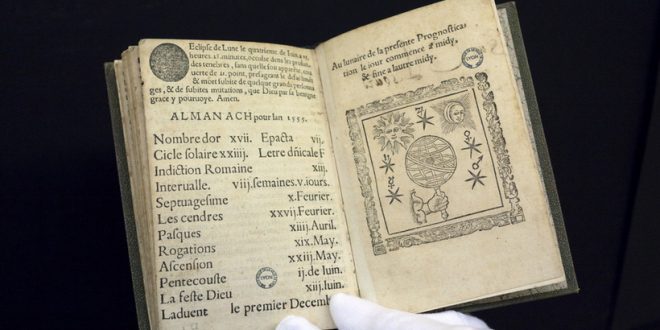 Eclipse de Lune le quatrieme de Iuin, a
heures, 25. minutes, occulte dans les profun-
des tenebres, sans quelle soit apparente, cou
uerte de 21. point, presageant le desaduan
ges, & mort subite de quelque grands personna
ges, & de subites mutations, que Dieu par sa benigne
grace y pouruoye. Amen.
ALMANACH pour lan 1555.
Nombre dor xvii. Epacta vij.
Cicle solaire xxiij. Letre dñicale F
Indiction Romaine xiij.
Interualle. viij.semaines.v.iours.
Septuagesime x.Feurier.
Les cendres xxvij.Feurier.
Pasques xiiij.Auril.
Rogations xix.May.
Ascension xxiij.May.
Pentecouste ij.de Iuin.
La feste Dieu xiij.Iuin.
Laduent le premier Decemb
Au lunaire de la presente Prognostica
tion le iour commence a midy,
& fine a lautre midy.
LYON
LYON